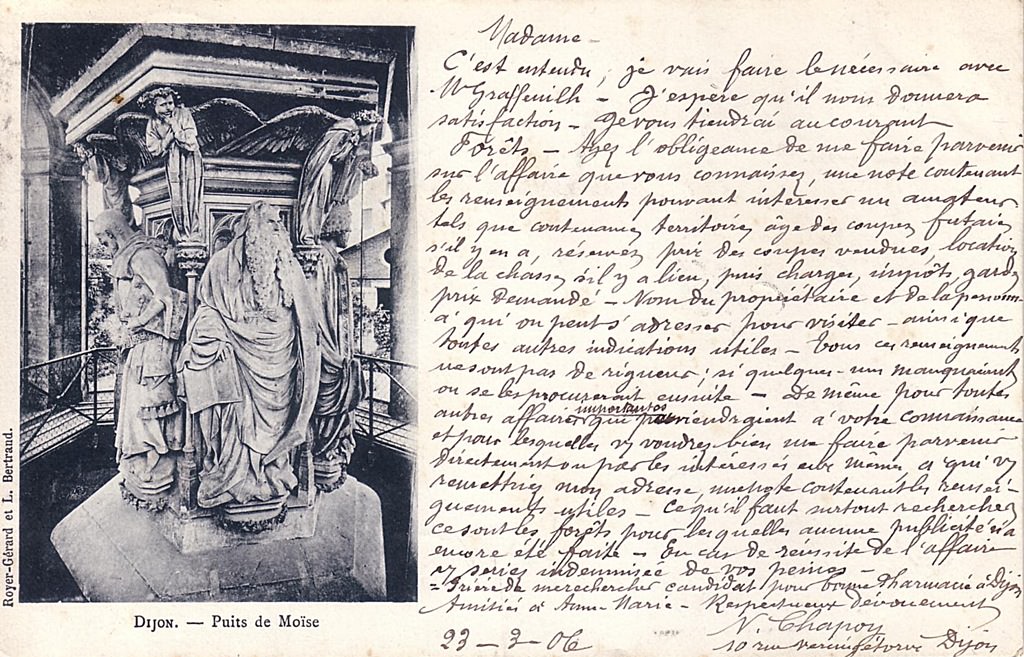 Madame -
C'est entendu, je vais faire le nécessaire avec
Mr Graffeuilh - J'espère qu'il nous donnera
satisfaction - Je vous tiendrai au courant
Forêts - Ayez l'obligeance de me faire parvenir
sur l'affaire que vous connaissez, une note contenant
les renseignements pouvant intéresser un amateur
tels que contenance, territoire, âge des coupes, futaie,
s'il y en a, réserves, prix des coupes vendues, location
de la chasse, s'il y a lieu, puis charges, impôts, garde
prix demandé - Nom du propriétaire et de la personne
à qui on peut s'adresser pour visiter - ainsi que
toutes autres indications utiles - Tous ces renseignements
ne sont pas de rigueur; si quelques-uns manquaient
on se les procurerait ensuite - De même pour toutes
autres affaires importantes qui viendraient à votre connaissance
et pour lesquelles vs voudrez bien me faire parvenir
directement ou par les intéressés eux mêmes, à qui vs
remettriez mon adresse, une note contenant les rensei-
gnements utiles - Ce qu'il faut surtout rechercher
ce sont les forêts pour lesquelles aucune publicité n'a
encore été faite - En cas de réussite de l'affaire
vs seriez indemnisée de vos peines -
- Prière de me rechercher candidat pour bonne Pharmacie à Dijon
Amitiés à Anne-Marie - Respectueux dévouement
N. Chapoy
10 rue Vercingétorix Dijon
23-3-06
Royer-Gérard et L. Bertrand.
DIJON. — Puits de Moïse